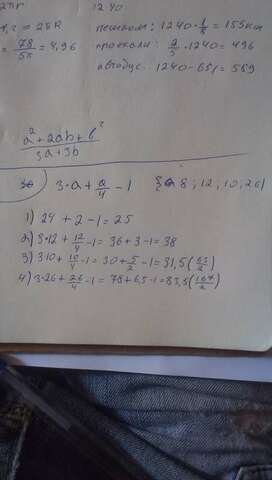 = 2πR
= 78/5π = 4,96
1240
пешком: 1240 · 1/8 = 155км
проехали: 2/5 · 1240 = 496
автобус. 1240 - 651 = 559
a² + 2ab + b² / 3a + 3b
3·a + a/4 - 1 { 8; 12; 10; 26}
1) 24 + 2 - 1 = 25
2) 3·12 + 12/4 - 1 = 36 + 3 - 1 = 38
3) 3·10 + 10/4 - 1 = 30 + 5/2 - 1 = 31,5 (63/2)
4) 3·26 + 26/4 - 1 = 78 + 6,5 - 1 = 83,5 (167/2)